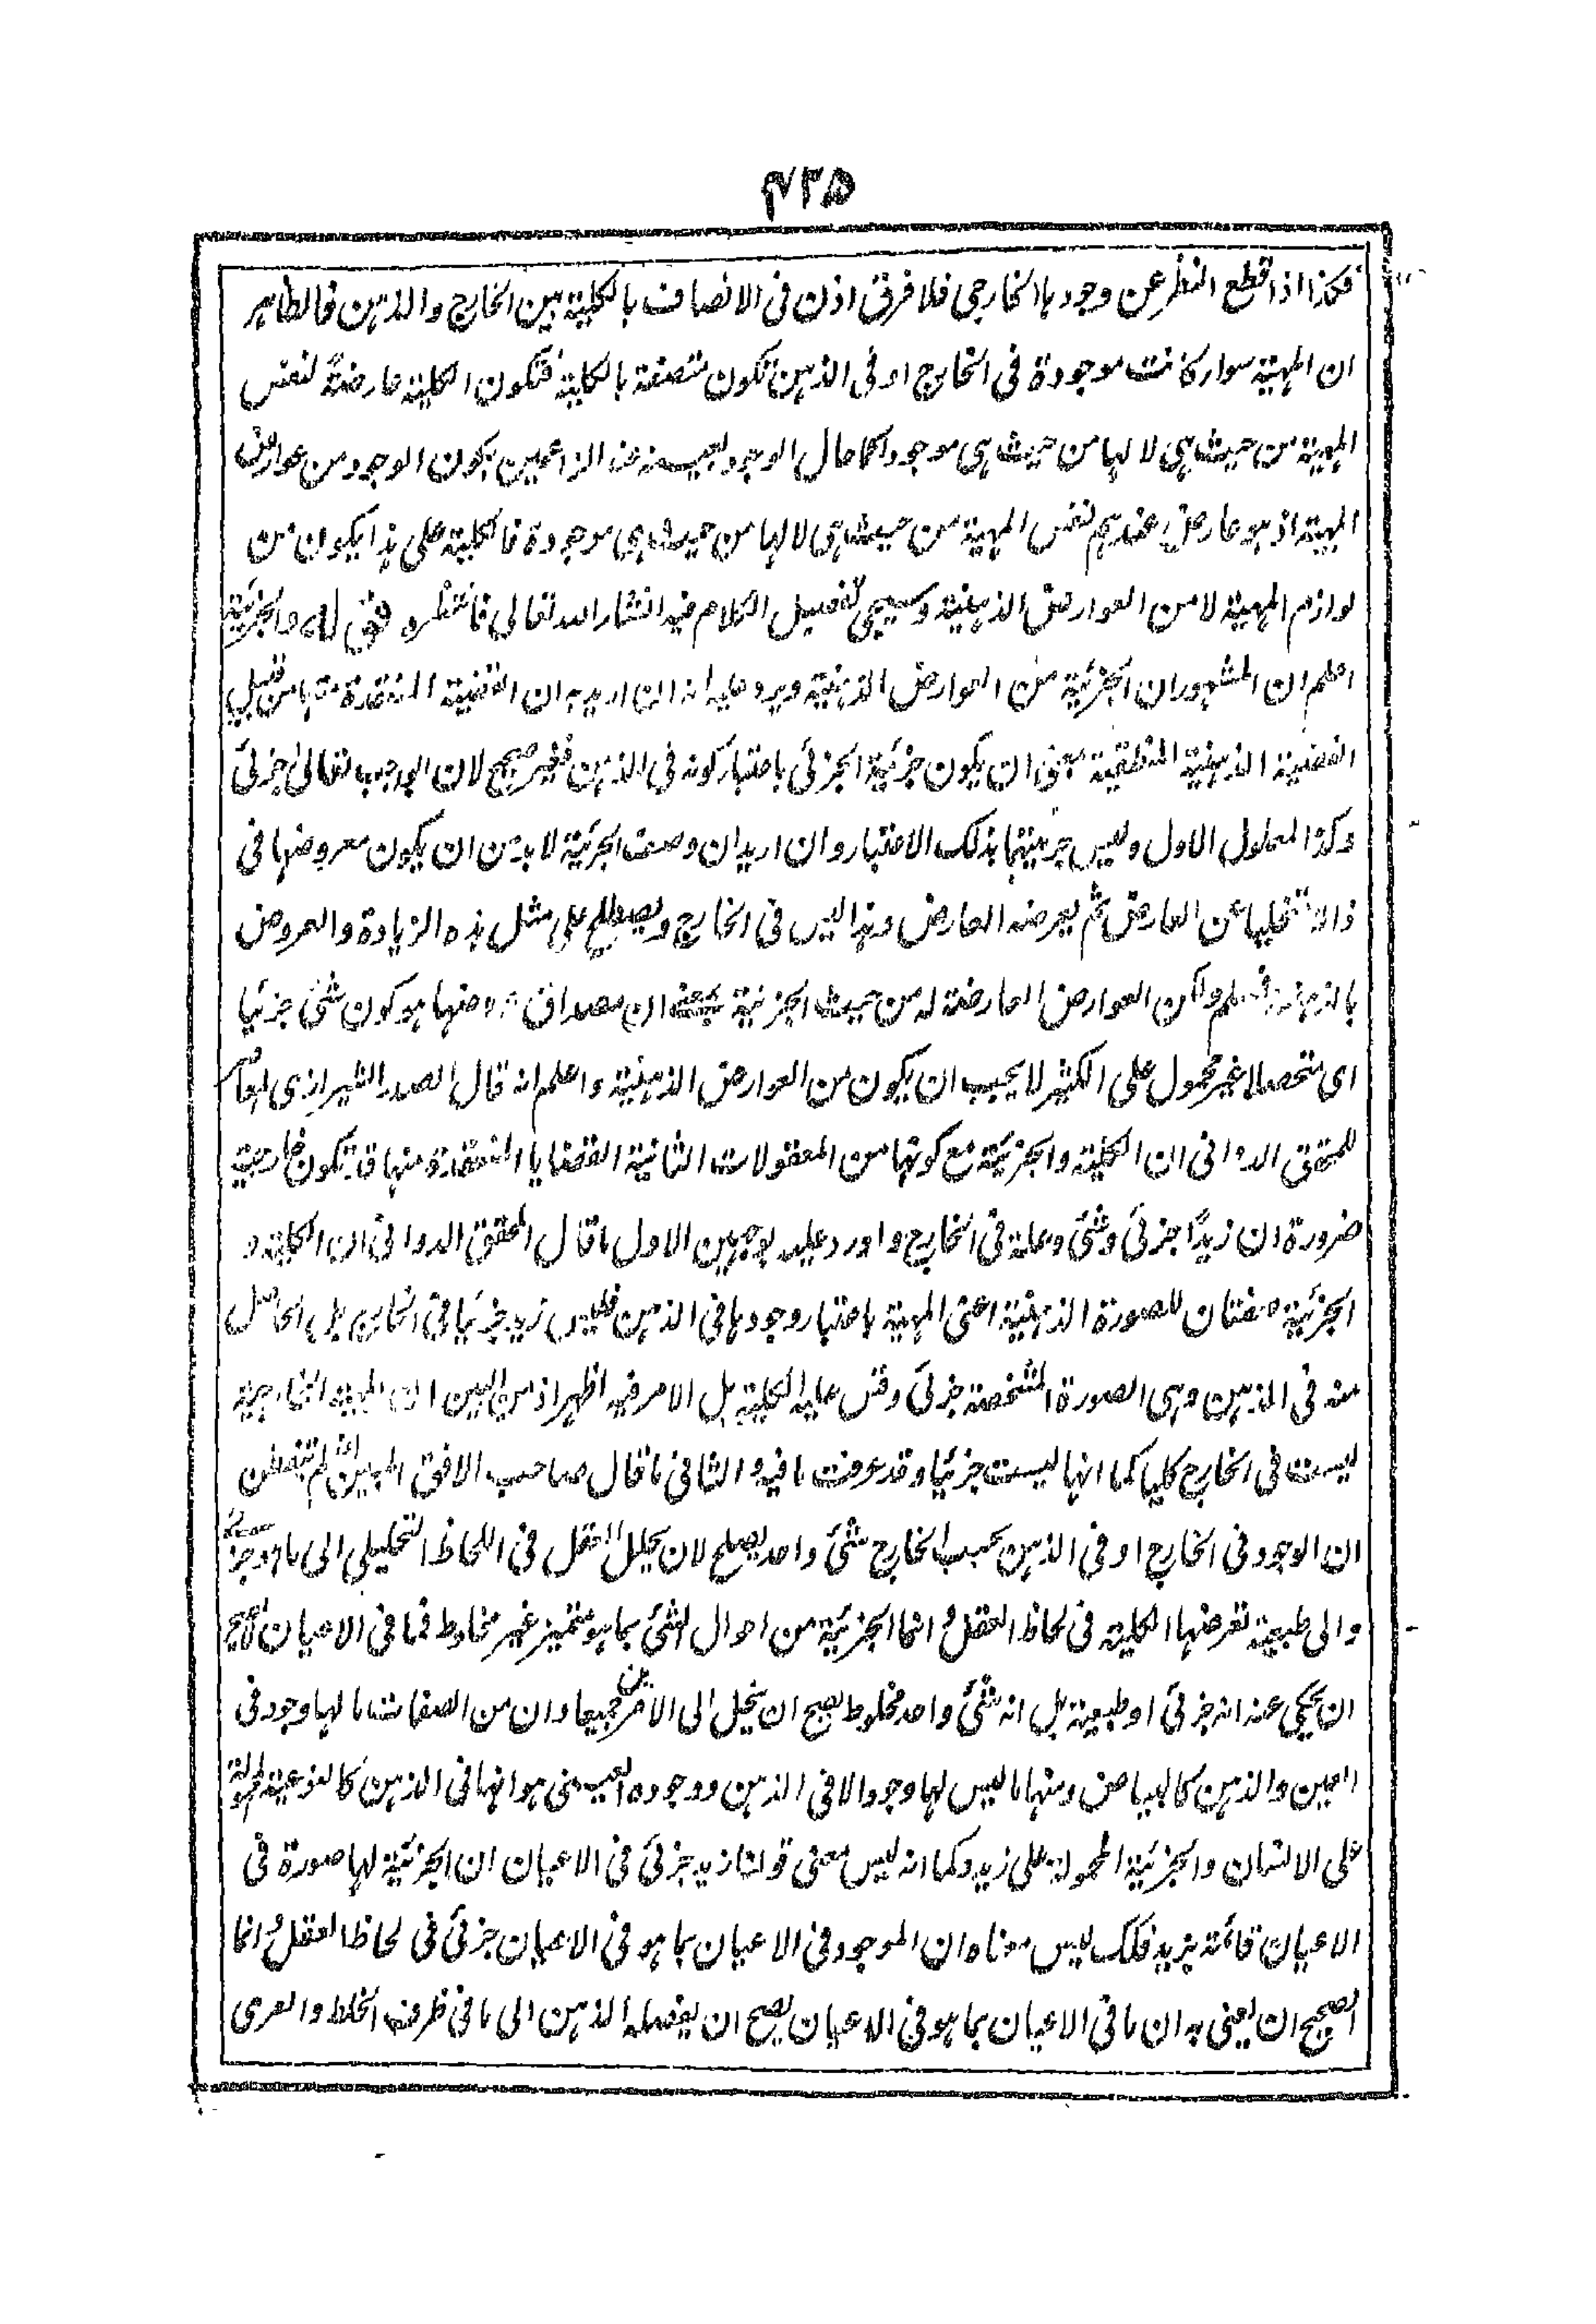 ۴۳۵
فكذا اذا قطع النظر عن وجودها الخارجى فلا فرق اذن فى الاتصاف بالكلية بين الخارج والذهن فالظاهر
ان المهية سواء كانت موجودة فى الخارج او فى الذهن تكون متصفة بالكلية فتكون الكلية عارضة لنفس
المهية من حيث هى لا لها من حيث هى موجودة كما حال الوجود بعينه عند الزاعمين بكون الوجود من عوارض
المهية اذ هو عارض عندهم لنفس المهية من حيث هى لا لها من حيث هى موجودة فالكلية على هذا يكون من
لوازم المهية لا من العوارض الذهنية وسيجئ تفصيل الكلام فيه انشاء الله تعالى فانتظره قوله والجزئية
اعلم ان المشهور ان الجزئية من العوارض الذهنية ويرد عليه انه ان اريد به ان القضية المنعقدة منها من قبيل
القضية الذهنية المنطقية بمعنى ان يكون جزئية الجزئى باعتبار كونه فى الذهن فغير صحيح لان الواجب تعالى جزئى
وكذا المعلول الاول وليس جزئيتهما بذلك الاعتبار وان اريد ان وصف الجزئية لا بد من ان يكون معروضها فى
ذاته تخليا عن العارض ثم يعرضه العارض وهذا ليس فى الخارج ويصطلح على مثل هذه الزيادة والعروض
بالذهنية فمسلم ولكن العوارض العارضة له من حيث الجزئية بمعنى ان مصداق هو كون شئ جزئيا
اى متحصلا غير محمول على الكثير لا يجب ان يكون من العوارض الذهنية واعلم انه قال الصدر الشيرازى المعاصر
للمحقق الدوانى ان الكلية والجزئية مع كونها من المعقولات الثانية القضايا المنعقدة منها قد تكون خارجية
ضرورة ان زيدًا جزئى وشئ وعلة فى الخارج واورد عليه بوجهين الاول ما قال المحقق الدوانى ان الكلية و
الجزئية صفتان للصورة الذهنية اعنى المهية باعتبار وجودها فى الذهن فليس زيد جزئيا فى الخارج بل الحاصل
منه فى الذهن وهى الصورة المشخصة جزئى وقس عليه الكلية بل الامر فيه اظهر اذ من البين ان المهية الخارجية
ليست فى الخارج كليا كما انها ليست جزئيا وقد عرفت ما فيه والثانى ما قال صاحب الافق المبين انه لم تفطن
ان الوجود فى الخارج او فى الذهن بحسب الخارج شئ واحد يصلح لان يحلل العقل فى اللحاظ التحليلى الى ما هو جزئى
والى طبيعة تعرضها الكلية فى لحاظ العقل وانما الجزئية من احوال الشئ بما هو متميز غير مخلوط فما فى الاعيان لا يصح
ان يحكى عنه انه جزئى او طبيعية بل انه شئ واحد مخلوط يصح ان ينحل الى الامرين جميعا وان من الصفات ما لها وجود فى
العين والذهن كالبياض ومنها ما ليس لها وجود الا فى الذهن ووجوده العينى هو انها فى الذهن كالنوعية المحمولة
على الانسان والجزئية المحمولة على زيد وكما انه ليس معنى قولنا زيد جزئى فى الاعيان ان الجزئية لها صورة فى
الاعيان قائمة بزيد فكك ليس معناه ان الموجود فى الاعيان بما هو فى الاعيان جزئى فى لحاظ العقل وانما
الصحيح ان يعنى به ان ما فى الاعيان بما هو فى الاعيان يصح ان يفصله الذهن الى ما فى ظرف الخلط والعرى